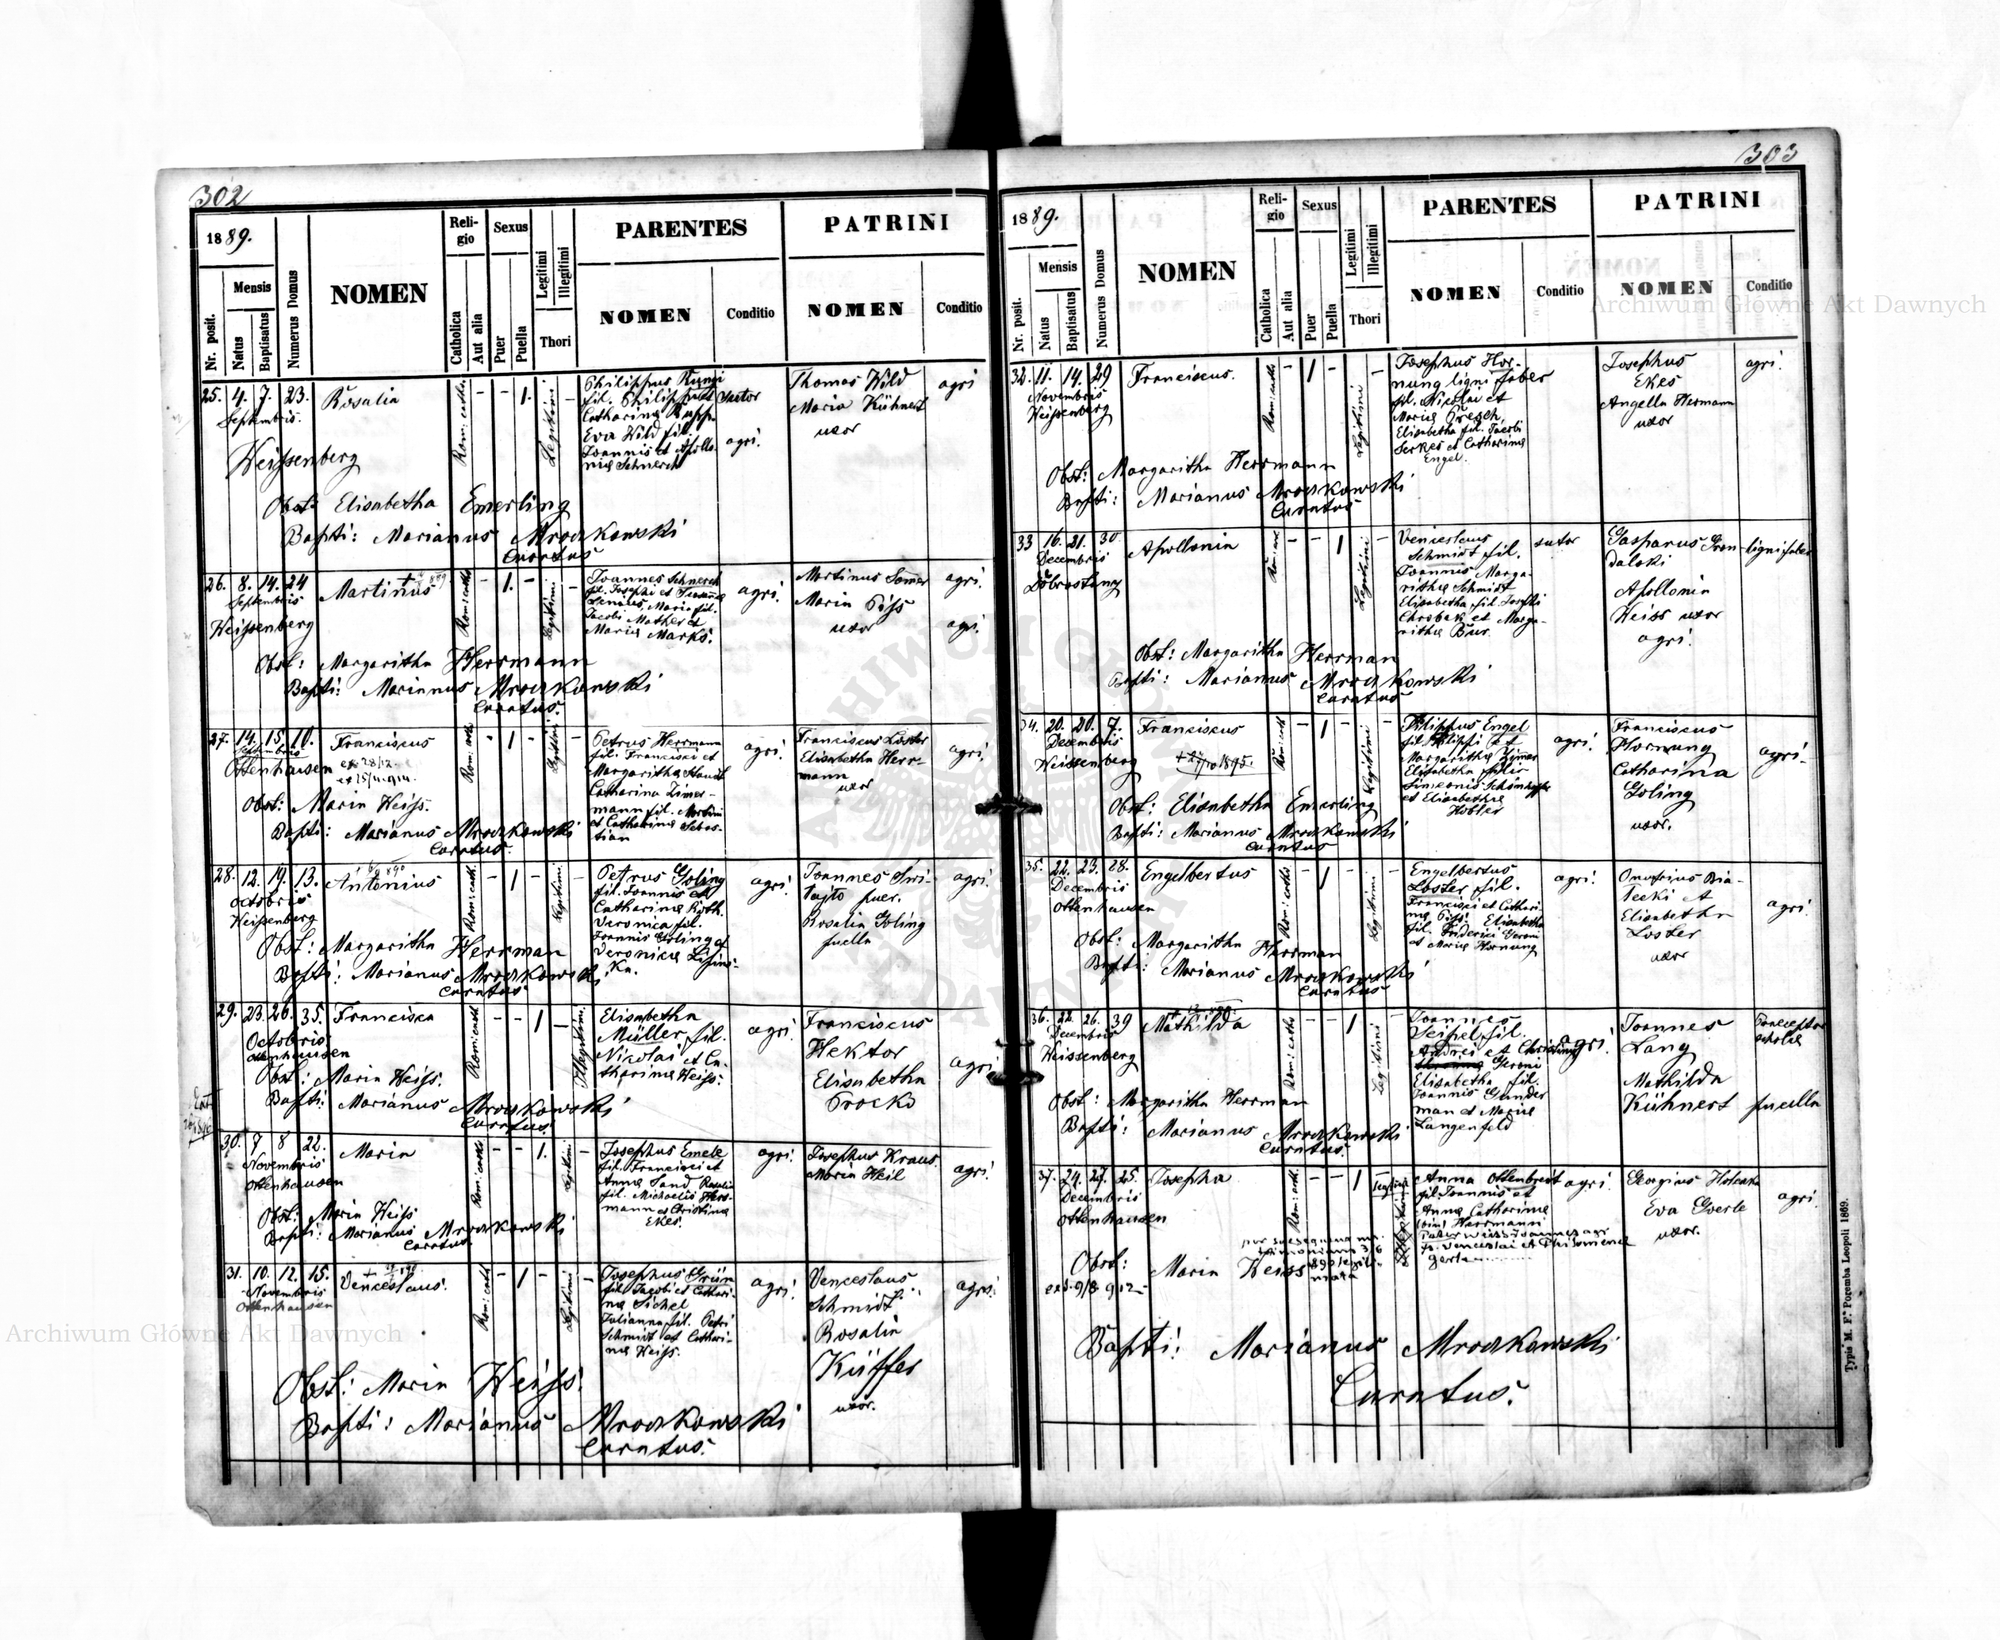 302
1889.
Mensis
Nr. posit.
Natus
Baptisatus
Numerus Domus
NOMEN
Religio
Catholica
Aut alia
Sexus
Puer
Puella
Legitimi
Illegitimi
Thori
PARENTES
NOMEN
Conditio
PATRINI
NOMEN
Conditio
25. 4. 7. 23. Rosalia
Septembris
Weissenberg
Rom: cath.
- - 1.
Legitimi
fil. Philippi et
Catharina Rupp
Eva Wild fil.
Joannis et Apollo-
nia Schnerch
sutor
agri.
Thomas Wild
Maria Kühnert
uxor
agri
Obst: Elisabetha Emerling
Bapti: Marianus Mroczkowski
Curatus
26. 8. 14. 24 Martinus
Septembris
Weissenberg
Rom: cath.
- 1. -
Legitimi
Joannes Schnerch
fil. Josephi et
Maria fil.
Jacobi Mather et
Maria Marks.
agri.
Martinus Somer
Maria Piss
uxor
agri.
agri.
Obst: Margaritha Herrmann
Bapti: Marianus Mroczkowski
Curatus.
27. 14. 15. 10. Franciscus
Septembris
Ottenhausen
Rom: cath
- 1 -
Legitimi
Petrus Herrmann
fil. Francisci et
Margaritha
Catharina Zimer-
mann fil. Martini
et Catharina Sebas-
tian
agri.
Franciscus Loster
Elisabetha Herr-
mann
uxor
agri.
Obst: Maria Weiss.
Bapti: Marianus Mroczkowski
Curatus.
28. 12. 19. 13. Antonius
Octobris
Weissenberg
Rom: cath.
- 1 -
Legitimi
Petrus Goling
fil. Joannis et
Catharina Roth.
Veronica fil.
Joannis Goling et
Veronica
agri.
Joannes Swi-
tajto puer.
Rosalia Goling
puella
agri.
Obst: Margaritha Herrman
Bapti: Marianus Mroczkowski
Curatus
29. 23. 26. 35. Francisca
Octobris
Ottenhausen
Rom: cath
- - 1 -
Illegitimi
Elisabetha
Müller fil.
Nicolai et Ca-
tharina Weiss.
agri.
Franciscus
Hektor
Elisabetha
Procks
agri
Obst: Maria Weiss.
Bapti: Marianus Mroczkowski
Curatus.
30. 7 8 22. Maria
Novembris
Ottenhausen
Rom: cath.
- - 1.
Legitimi
Josephus Emele
fil. Francisci et
Anna Sand Rosalia
fil. Michaelis Herr-
mann et Christina
Ekes.
agri.
Josephus Kraus
Maria Heil
agri.
Obst: Maria Weiss
Bapti: Marianus Mroczkowski
Curatus.
31. 10. 12. 15. Venceslaus.
Novembris
Ottenhausen
Rom: cath
- 1 -
Legitimi
Josephus Grün
fil. Jacobi et Cathari-
na Sichel
Julianna fil. Petri
Schmidt et Cathari-
na Weiss.
agri.
Venceslaus
Schmidt
Rosalia
Küffer
uxor.
agri.
Obst: Maria Weiss.
Bapti: Marianus Mroczkowski
Curatus.
303
1889.
Mensis
Nr. posit.
Natus
Baptisatus
Numerus Domus
NOMEN
Religio
Catholica
Aut alia
Sexus
Puer
Puella
Legitimi
Illegitimi
Thori
PARENTES
NOMEN
Conditio
PATRINI
NOMEN
Conditio
32. 11. 14. 29 Franciscus.
Novembris
Weissenberg
Rom: cath
- 1 -
Legitimi
Josephus Hor-
nung ligni faber
fil. Nicolai et
Maria Gresch
Elisabetha fil. Jacobi
Serkes et Catharina
Engel.
Josephus
Ekes
Angella Hermann
uxor
agri.
Obst: Margaritha Herrmann
Bapti: Marianus Mroczkowski
Curatus
33 16. 21. 30 Apollonia
Decembris
Dobrostany
- - 1
Legitimi
Venceslaus
Schmidt fil.
Joannis Marga-
ritha Schmidt
Elisabetha fil. Josephi
Chrobak et Marga-
ritha Bur.
sutor
Gasparus Gron-
dalski
Apollonia
Weiss uxor
agri.
ligni faber
Obst: Margaritha Herrman
Bapti: Marianus Mroczkowski
Curatus
34. 20. 20. 7. Franciscus
Decembris
Weissenberg
Rom: cath
- 1 -
Legitimi
Philippus Engel
fil. Philippi et
Margaritha Zimer
Elisabetha filia
Simeonis
et Elisabetha
Hobler
agri.
Franciscus
Hornung
Catharina
Goling
uxor.
agri.
Obst: Elisabetha Emerling
Bapti: Marianus Mroczkowski
Curatus
35. 22. 23. 28. Engelbertus
Decembris
Ottenhausen
Rom: cath
- 1 -
Legitimi
Engelbertus
Loster fil.
Francisci et Cathari-
na Piss. Elisabetha
fil. Friderici Geroni
et Maria Hornung
agri.
Onufrius Bia-
tecki et
Elisabetha
Loster
uxor
agri.
Obst: Margaritha Herrman
Bapti: Marianus Mroczkowski
Curatus
36. 22. 26. 39 Mathilda
Decembris
Weissenberg
Rom: cath
- - 1
Legitimi
Joannes
Seipel fil.
Andrei et Christina
Geroni
Elisabetha fil.
Joannis Gunder
man et Maria
Langenfeld
agri.
Joannes
Lang
Mathilda
Kühnert
puella
Obst: Margaritha Herrman
Bapti: Marianus Mroczkowski
Curatus.
37. 24. 27. 25. Josepha
Decembris
Ottenhausen
Rom: cath.
- - 1
Anna Ottenbreit
fil. Joannis et
Anna Catharina
(bin) Herrmann
Pater Weiss Joannes agr.
fs. Venceslai et Philomena
Gerta
agri.
Georgius Holocek
Eva Gverle
uxor.
agri.
per subsequens ma-
trimonium 3/6
890 legiti-
mata
Obst: Maria Weiss
Bapti: Marianus Mroczkowski
Curatus.
Typis M. F. Poremba Leopoli 1869.
Archiwum Główne Akt Dawnych
Archiwum Główne Akt Dawnych